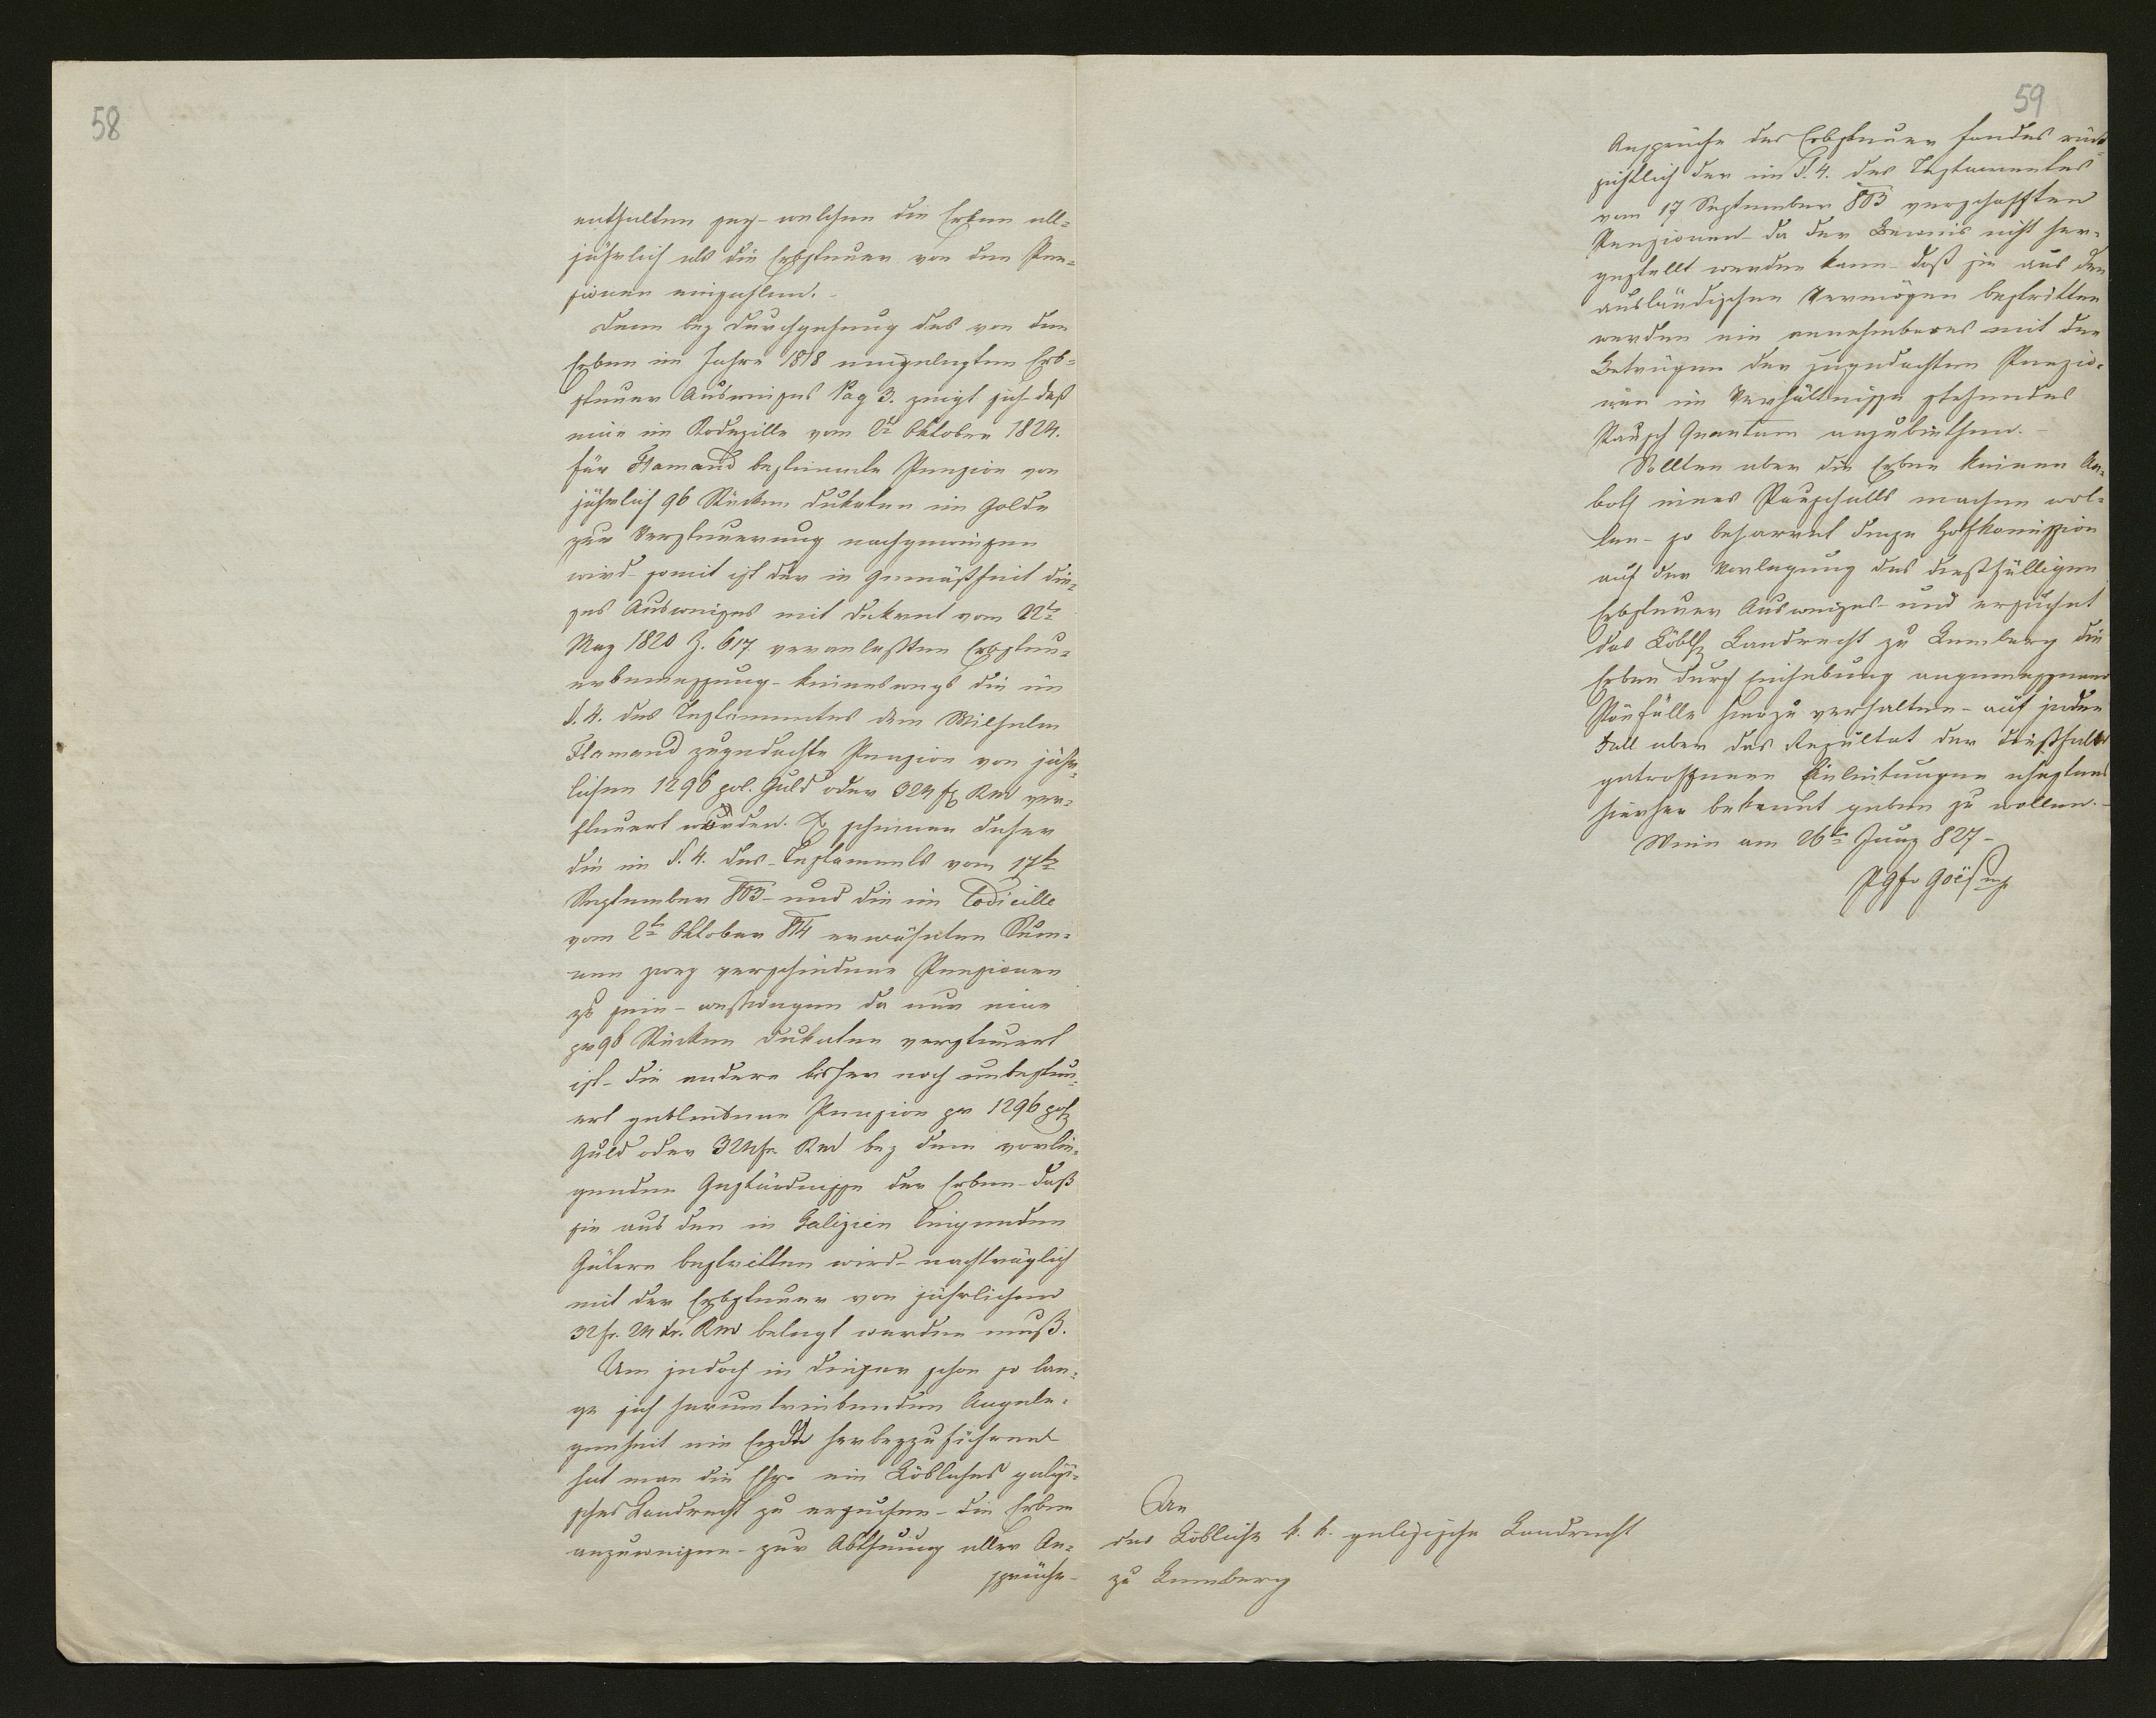 58
enthalten sey – welchen die Erben all-
jährlich als die Erbsteuer von den Pen-
sionen einzahlen. –
Denn bey Durchgehung des von den
Erben im Jahre 1818 eingelegten Erb-
steuer Ausweises Pag 3. zeigt sich – daß
nur im Kodezille vom 2t Oktober 1824.
für Flamand bestimmte Pension von
jährlich 96 Stücken Dukaten im Golde
zur Versteuerung nachgewiesen
wird – somit ist der in Gemäßheit die-
ses Ausweises mit Dekret vom 22t
May 1820 Z. 617. veranlaßten Erbsteu-
erbemessung – keineswegs die im
§. 4. des Testamentes dem Wilhelm
Flamand zugedachte Pension von jähr-
lichen 1296 pol. Guld oder 324 f Kmz ver-
steuert worden. Es scheinen daher
die im §. 4. des Testaments vom 17t
September 803 – und die im Codicille
vom 2t Oktober 814 erwähnten Sum-
men zwey verschiedene Pensionen
zu sein – weßwegen da nur eine
pr 96 Stücken Dukaten versteuert
ist – die andere bisher noch unbesteu-
ert gebliebene Pension pr 1296 pol
Guld oder 324 fr. Kmz bey dem vorlie-
genden Geständnisse der Erben – daß
sie aus den in Galizien liegenden
Gütern bestritten wird – nachträglich
mit der Erbsteuer von jährlichen
32 fr. 24 kr. Kmz belegt werden muß.
Um jedoch in dieser schon so lan-
ge sich herumtreibenden Angele-
genheit ein Ende herbeyzuführen –
hat man die Ehre ein Löbliches galizi-
sches Landrecht zu ersuchen – die Erben
anzuweisen – zur Abthuung aller An-
sprüche –
59
Ansprüche des Erbsteuer fondes rück-
sichtlich der im §. 4. des Testamentes
vom 17 September 803 verschafften
Pensionen – da der Beweis nicht her-
gestellt werden kann – daß sie aus den
ausländischen Vermögen bestritten
werden ein annehmbares mit den
Beträgen der zugedachten Pensio-
nen im Verhältnisse stehendes
Pausch Quantum anzubiethen. –
Sollten aber die Erben keinen An-
both eines Pauschalls machen wol-
len – so beharret diese Hofkomission
auf der Vorlegung des dießfälligen
Erbsteuer Ausweises – und ersuchet
das Löbl Landrecht zu Lemberg die
Erben durch Einhebung angemessener
Pönfälle hiezu verhalten – auf jeden
Fall aber das Resultat der dießfalls
getroffenen Einleitungen ehestens
hierher bekannt geben zu wollen. –
Wien am 26t Juny 827 –
PGfv Goëß mp
An
das Löbliche k. k. galizische Landrecht
zu Lemberg